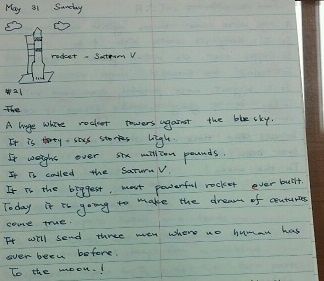 May 31 Sunday
rocket - Saturn V
#21
The
A huge white rocket towers against the blue sky.
It is thirty-sixs stories high.
It weighs over six million pounds.
It is called the Saturn V.
It is the biggest, most powerful rocket ever built.
Today it is going to make the dream of centuries
come true.
It will send three men where no human has
ever been before.
To the moon.!